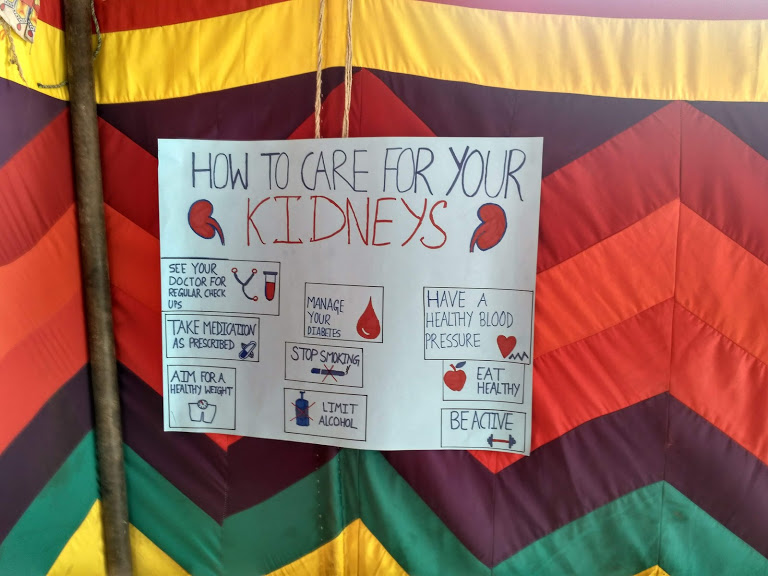 HOW TO CARE FOR YOUR
KIDNEYS
SEE YOUR
DOCTOR FOR
REGULAR CHECK
UPS
TAKE MEDICATION
AS PRESCRIBED
AIM FOR A
HEALTHY WEIGHT
MANAGE
YOUR
DIABETES
STOP SMOKING
LIMIT
ALCOHOL
HAVE A
HEALTHY BLOOD
PRESSURE
EAT
HEALTHY
BE ACTIVE